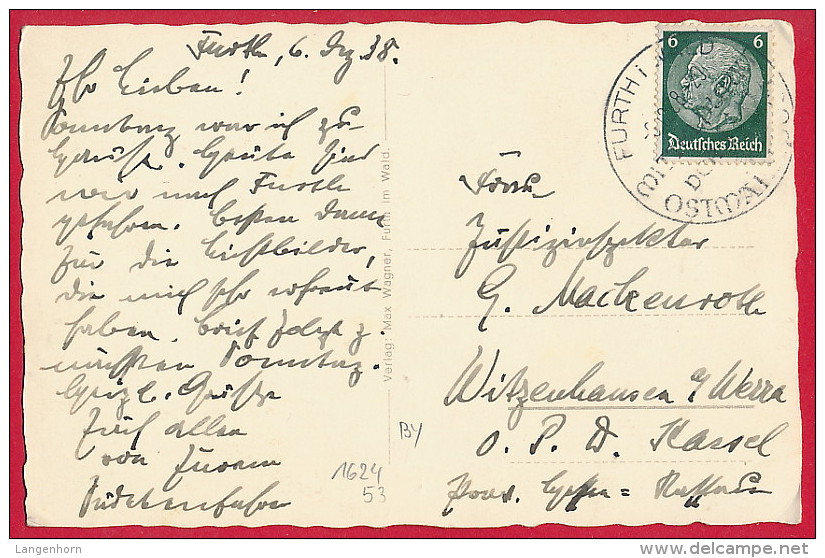 Furth, 6. Dez. 38.
Ihr Lieben!
Sonntag war ich zu
Hause. Heute sind
wir nach Furth
gefahren. Besten Dank
für die Lichtbilder,
die mich sehr erfreut
haben. Brief folgt z.
nächsten Sonntag.
Herzl. Grüße
Euch allen
von Eurem
Sudetenfahrer
Verlag: Max Wagner, Furth im Wald.
1624
53
BY
6 6
Deutsches Reich
FURTH i
OSTMA
Herrn
Justizinspektor
G. Mackenroth
Witzenhausen a/Werra
O. P. D. Kassel
Prov. Hessen-Nassau
Langenhorn
delcampe.net